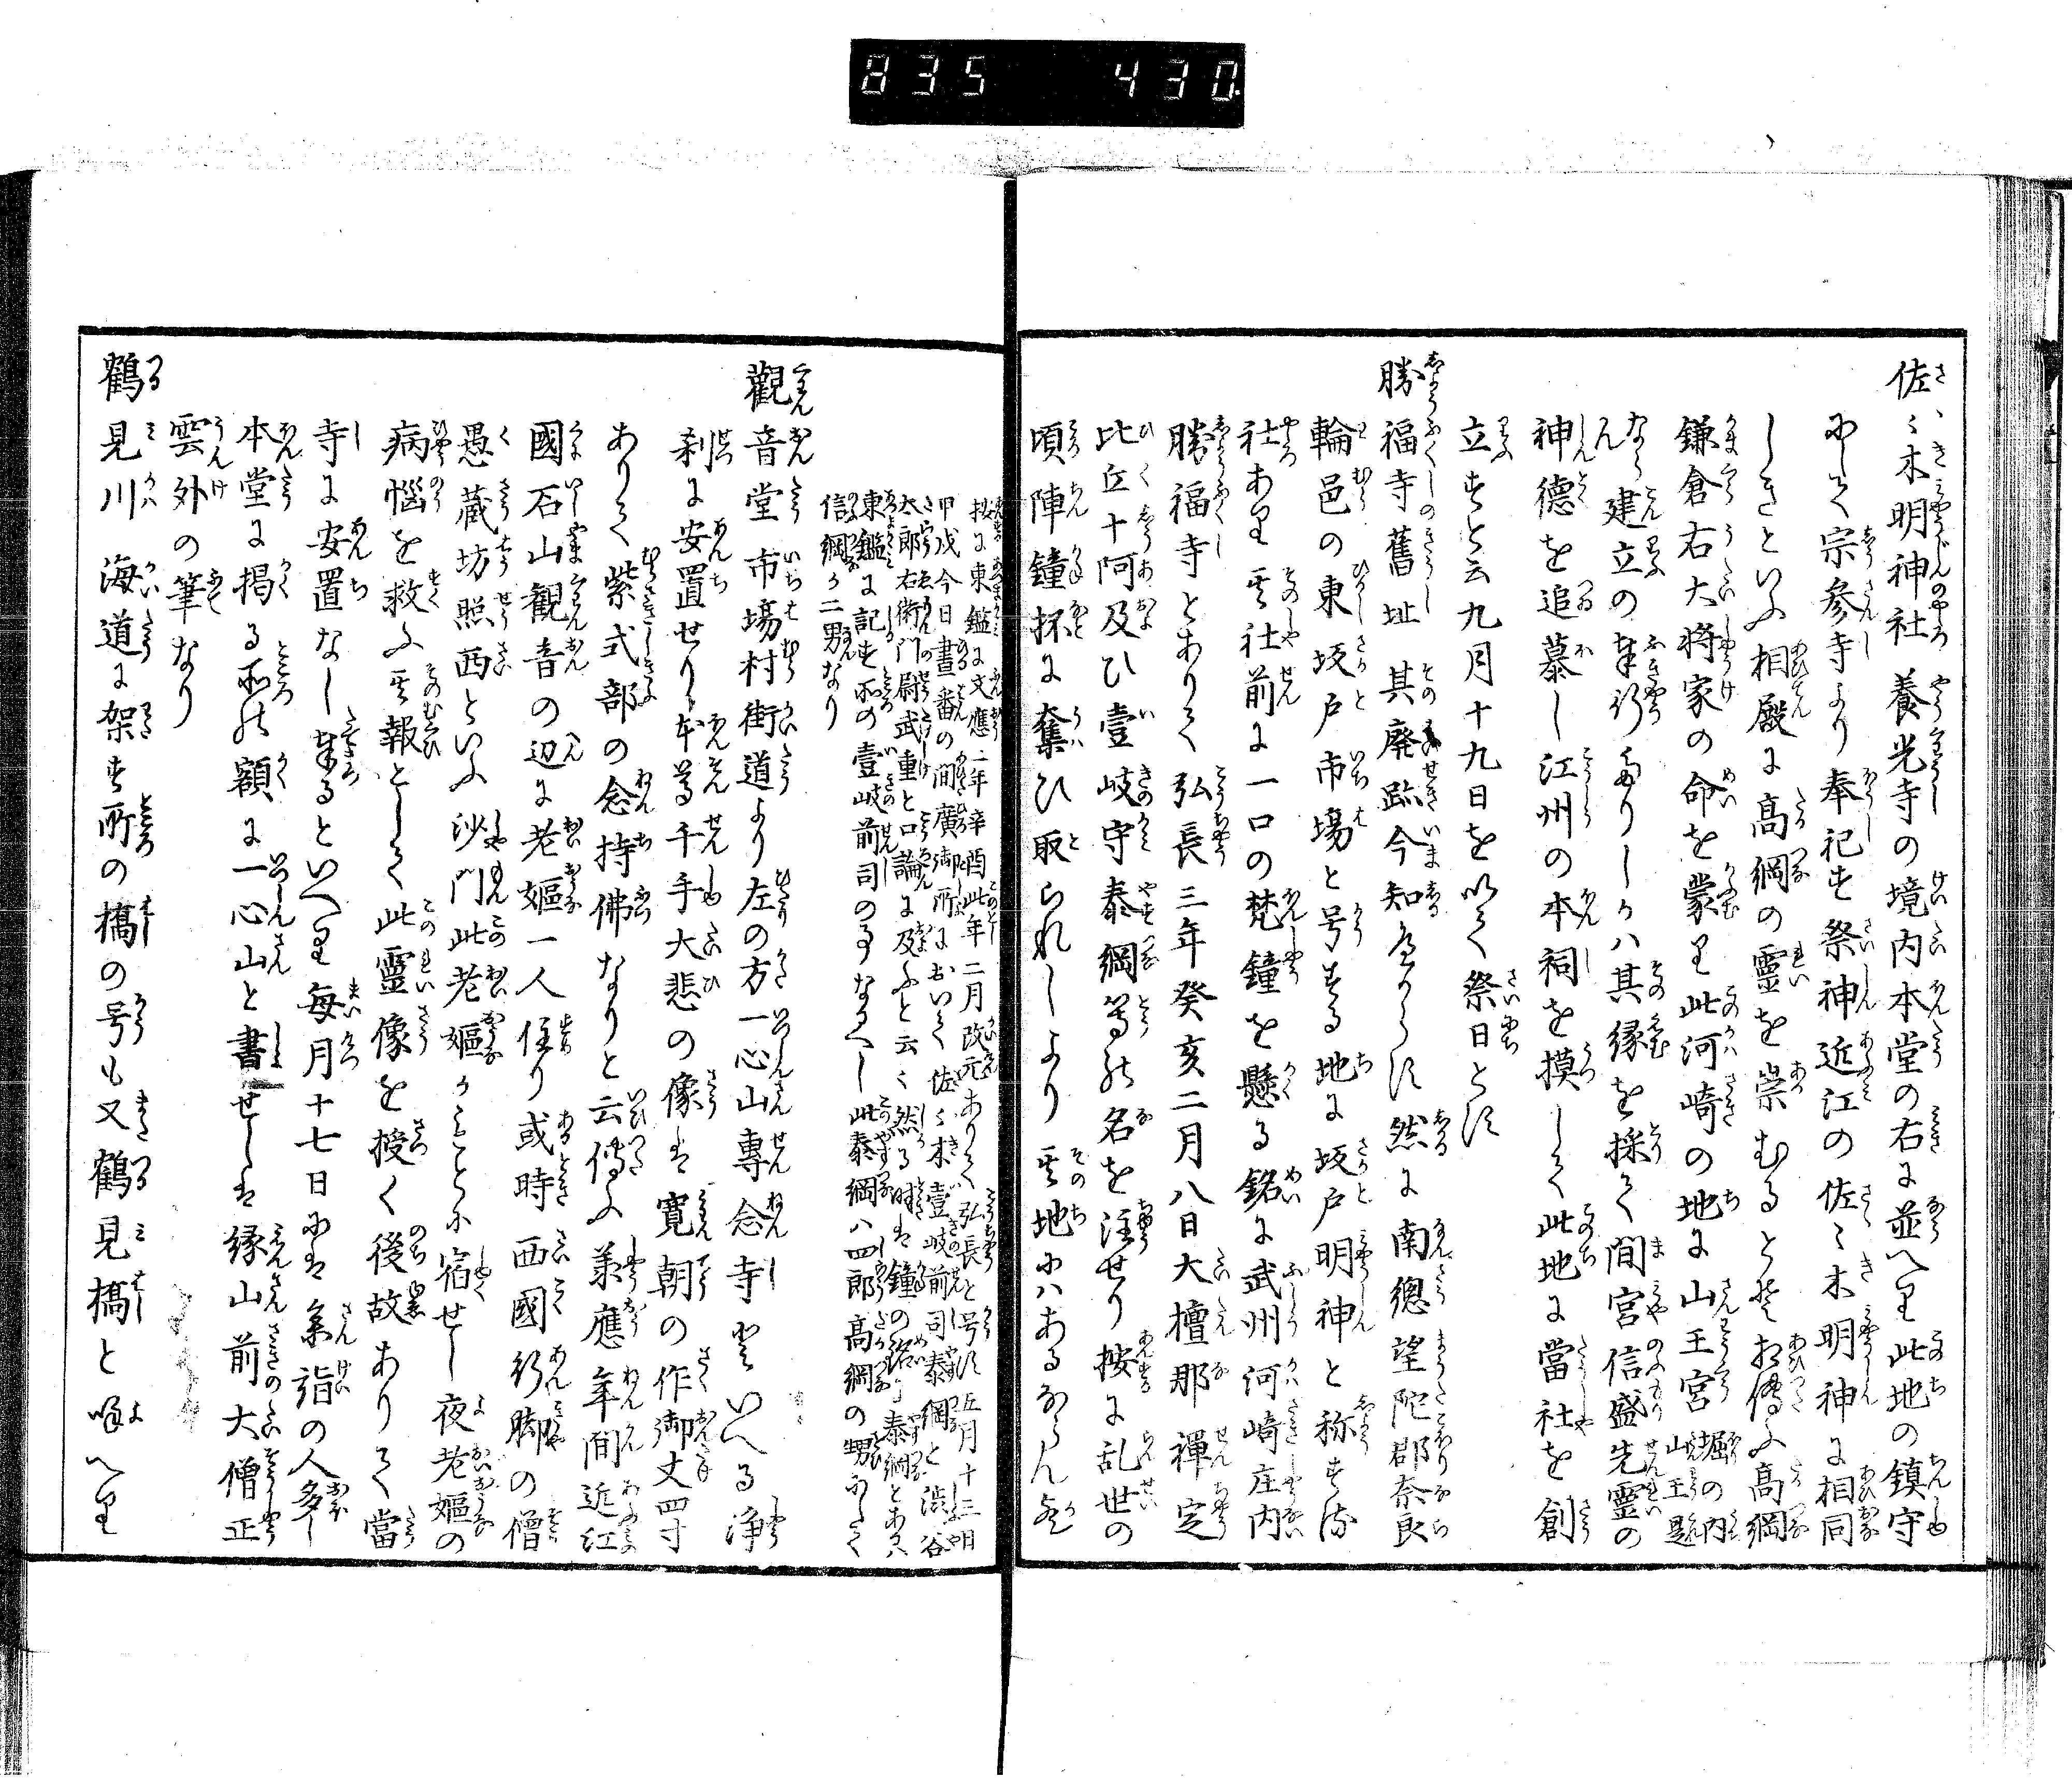 835 430
佐々木明神社 養光寺の境内本堂の右に並へり此地の鎮守
にして宗參寺より奉祀す祭神近江の佐々木明神に相同
しきといふ相殿に高綱の靈を崇むるとそ相傳ふ高綱
鎌倉右大将家の命を蒙り此河崎の地に山王宮堀の内山王是
なり建立の奉行たりしか八其縁を採て間宮信盛先靈の
神德を追慕し江州の本祠を摸して此地に當社を創
立すと云九月十九日を以て祭日とす
勝福寺舊址 其廃跡今知へからす然に南總望陀郡奈良
輪邑の東坂戸市場と号する地に坂戸明神と称する
社あり其社前に一口の梵鐘を懸る銘に武州河崎庄内
勝福寺とありて弘長三年癸亥二月八日大檀那禪定
比丘十阿及ひ壹岐守泰綱等の名を注せり按に乱世の
頃陣鐘抔に奪ひ取られしより其地にハあるならん歟
按に東鑑に文應二年辛酉此年二月改元ありて弘長と号す五月十三日
甲戌今日晝番の間廣御所において佐々木壹岐前司泰綱と渋谷
太郎右衛門尉武重と口論に及ふと云々然る時は鐘の銘に泰綱とあるハ
東鑑に記す所の壹岐前司の事なるへし此泰綱ハ四郎高綱の甥にして
信綱か二男なり
觀音堂 市場村街道より左の方一心山專念寺といへる浄
刹に安置せり本尊千手大悲の像は寛朝の作御丈四寸
ありて紫式部の念持佛なりと云傳ふ義應年間近江
國石山觀音の辺に老嫗一人住り或時西國行脚の僧
愚蔵坊照西といふ沙門此老嫗かもとに宿せし夜老嫗の
病惱を救ふ其報として此靈像を授く後故ありて當
寺に安置なし奉るといへり毎月十七日には參詣の人多し
本堂に掲る所の額に一心山と書せしは縁山前大僧正
雲外の筆なり
鶴見川 海道に架す所の橋の号も又鶴見橋と唱へり